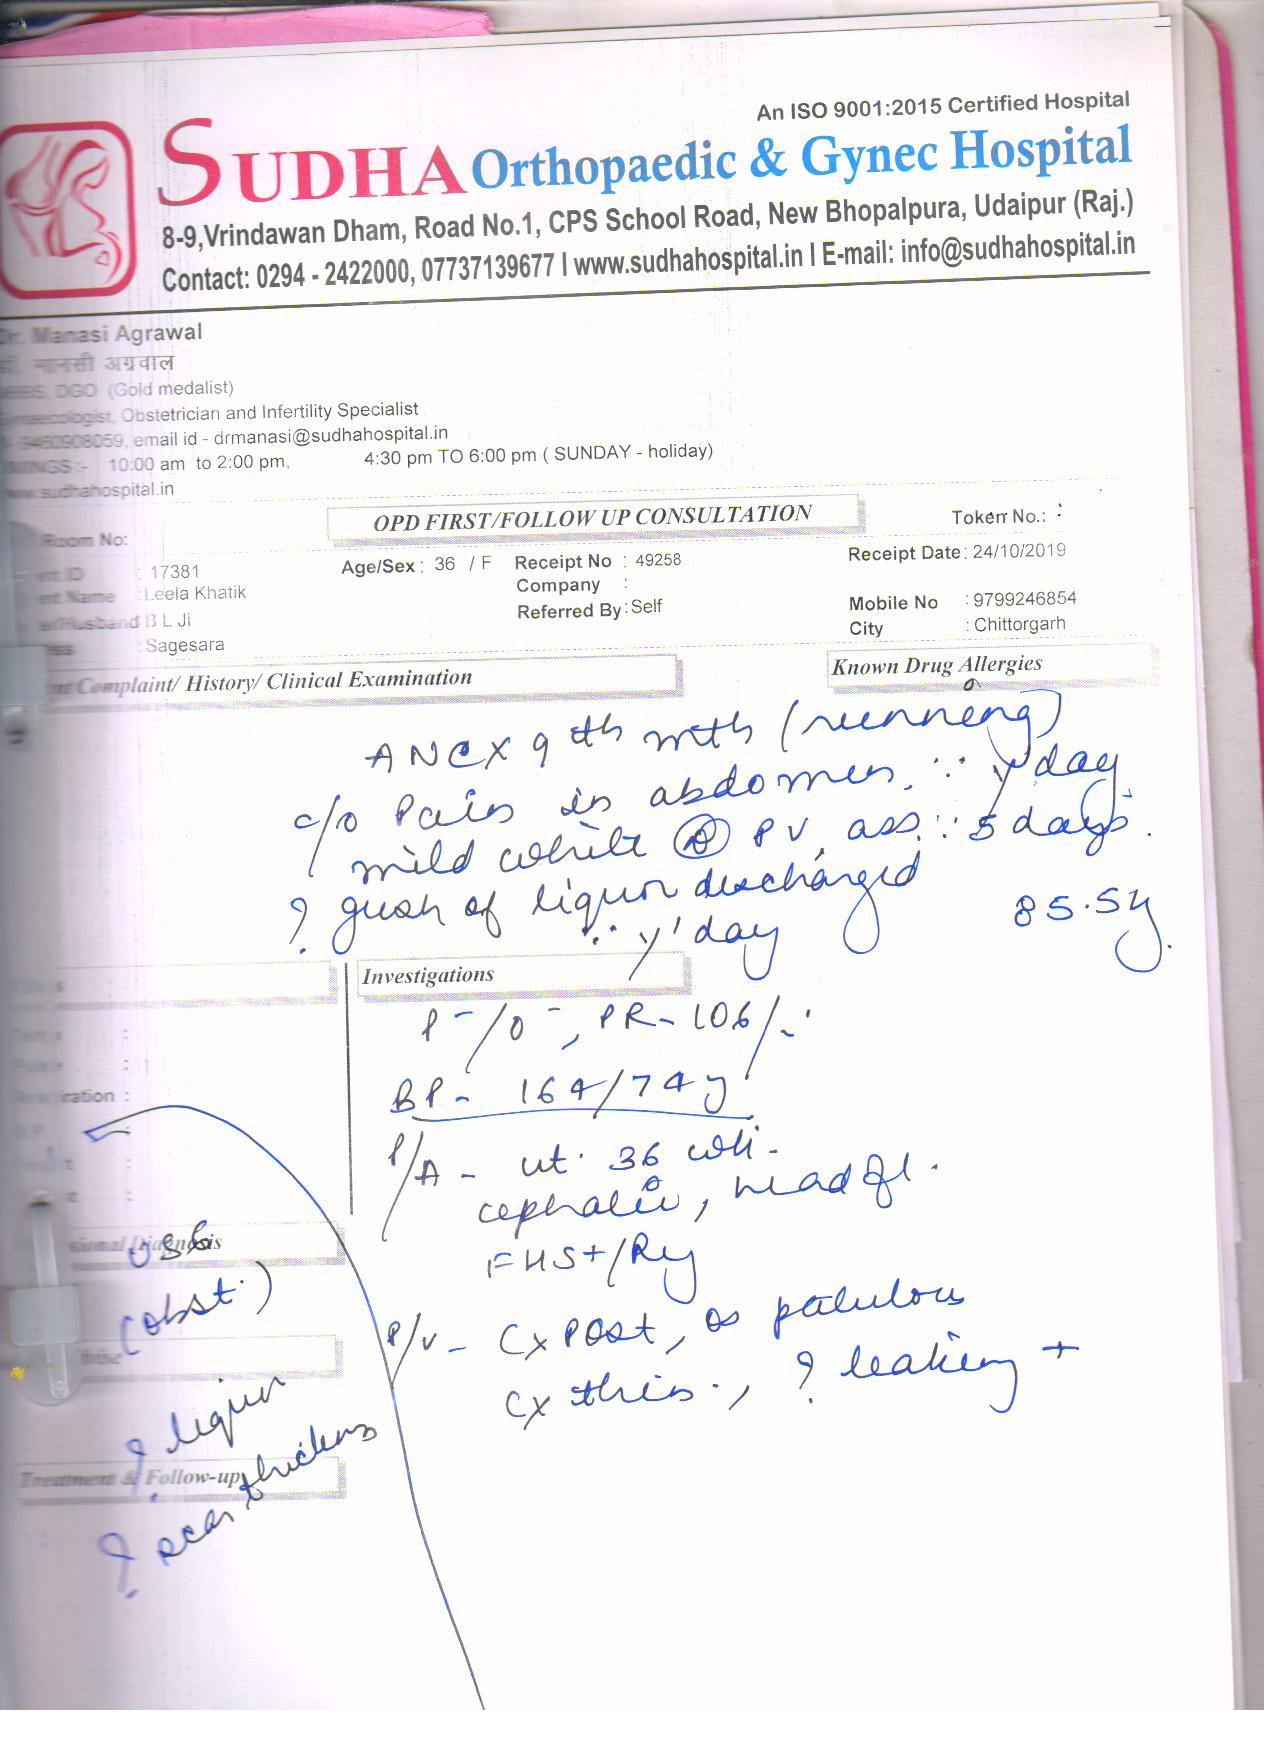 An ISO 9001:2015 Certified Hospital
SUDHA Orthopaedic & Gynec Hospital
8-9,Vrindawan Dham, Road No.1, CPS School Road, New Bhopalpura, Udaipur (Raj.)
Contact: 0294 - 2422000, 07737139677 I www.sudhahospital.in I E-mail: info@sudhahospital.in
Dr. Manasi Agrawal
डॉ. मानसी अग्रवाल
MBBS, DGO (Gold medalist)
Gynaecologist, Obstetrician and Infertility Specialist
9460908059, email id - drmanasi@sudhahospital.in
TIMINGS :- 10:00 am to 2:00 pm, 4:30 pm TO 6:00 pm ( SUNDAY - holiday)
www.sudhahospital.in
OPD FIRST/FOLLOW UP CONSULTATION
Token No.:
Room No:
ent ID : 17381
Age/Sex : 36 / F
Receipt No : 49258
Receipt Date : 24/10/2019
ent Name : Leela Khatik
Company :
Mobile No : 9799246854
er/Husband B L Ji
Referred By : Self
City : Chittorgarh
ess : Sagesara
nt Complaint/ History/ Clinical Examination
Known Drug Allergies
ANC X 9th mth (running)
c/o Pain in abdomen ∵ y'day
mild white Ⓓ PV, ass. ∵ 5 days.
? gush of liquor discharged
∵ y'day
85.5 kg
Investigations
P -/O -, PR - 106/-
BP - 164/74
P/A - ut. 36 wk.
cephalic, head fl.
FHS +/Reg
P/V - Cx Post, os patulous
Cx thin, ? leaking +
iration :
Diagnosis
USG
(obst.)
? liquor
Treatment & Follow-up
? scar thickness